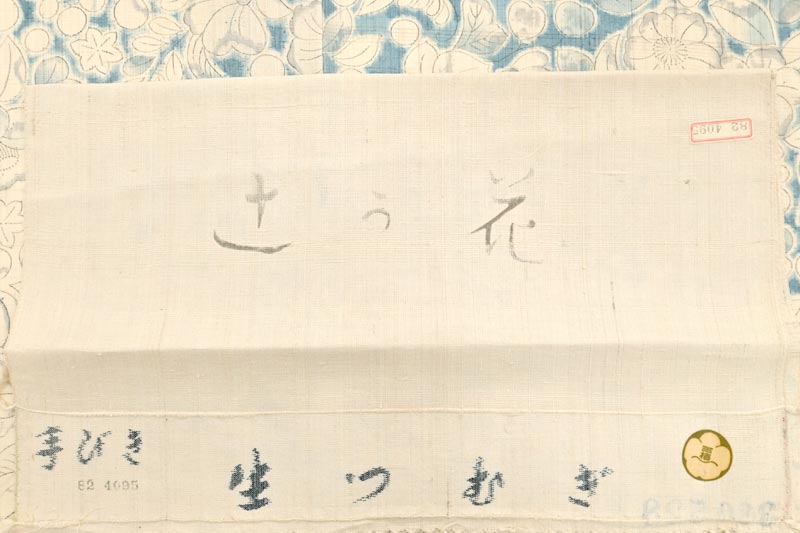 82 4095
辻が花
手びき
82 4095
生つむぎ